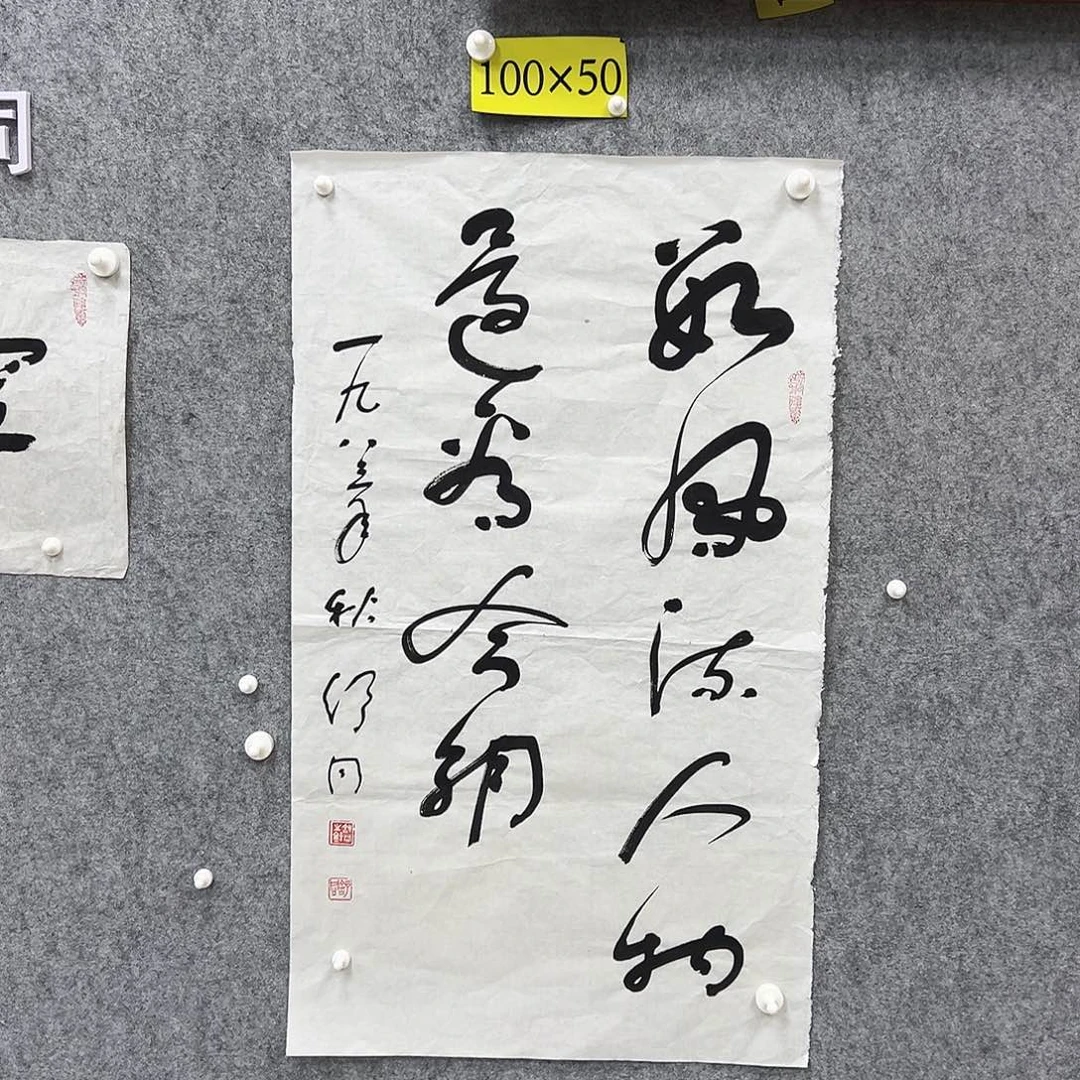 100×50
數風流人物
還看今朝
一九八三年秋 舒同